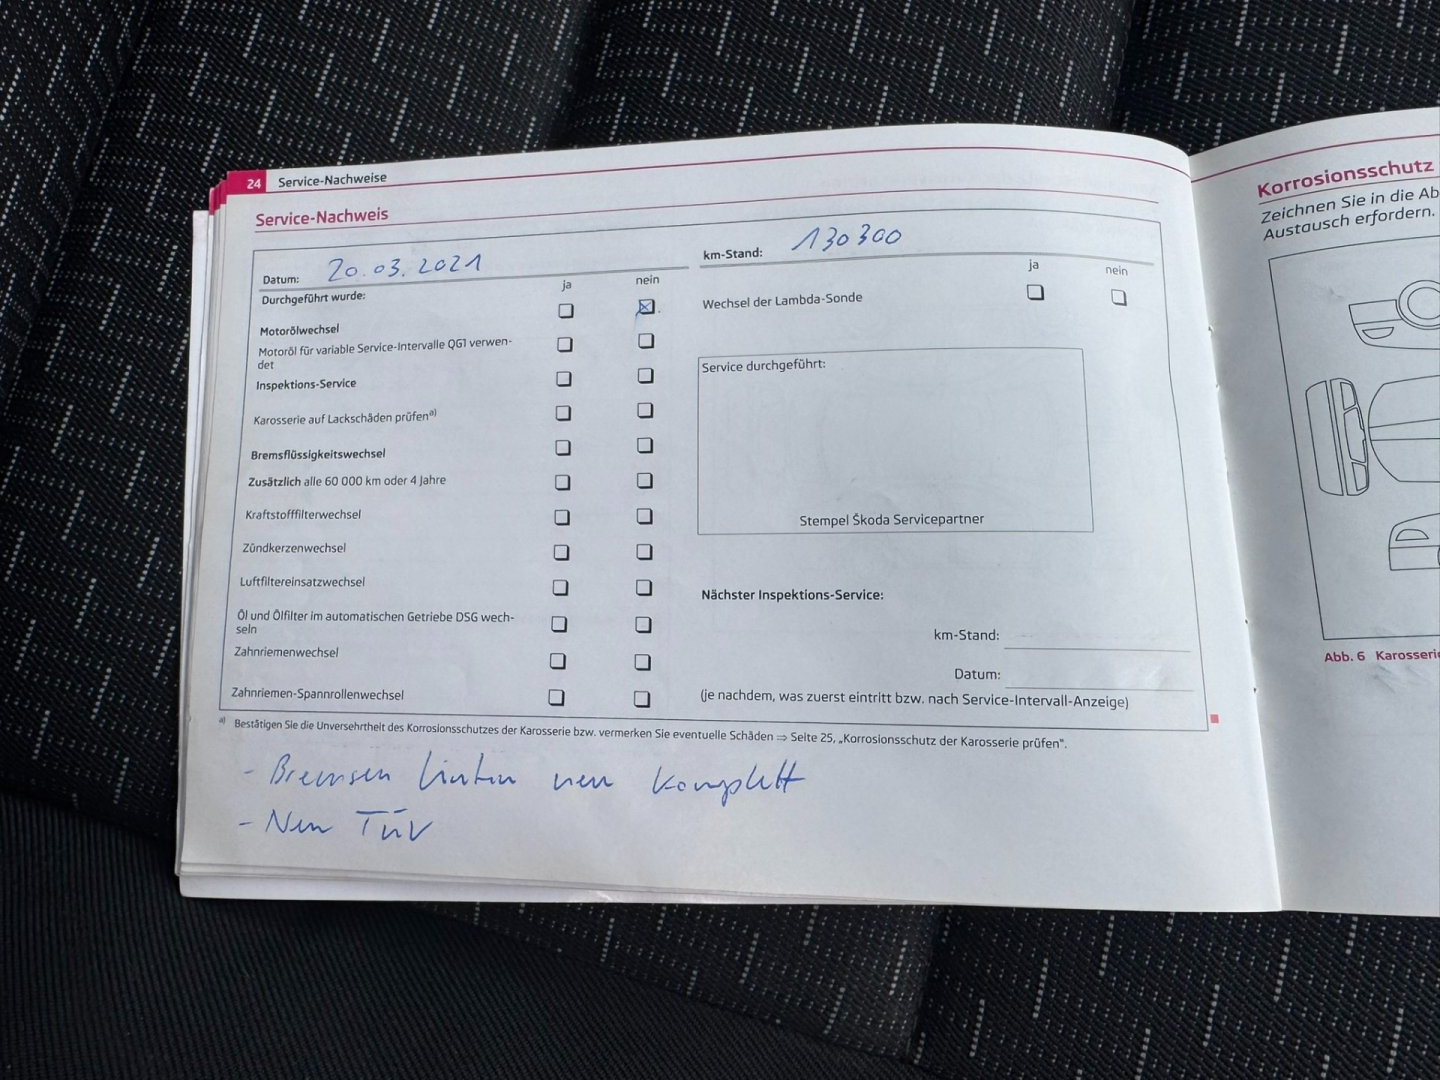 24 Service-Nachweise
Service-Nachweis
Datum: 20.03.2021
Durchgeführt wurde:
ja nein
Motorölwechsel
Motoröl für variable Service-Intervalle QG1 verwen-
det
Inspektions-Service
Karosserie auf Lackschäden prüfen a)
Bremsflüssigkeitswechsel
Zusätzlich alle 60 000 km oder 4 Jahre
Kraftstofffilterwechsel
Zündkerzenwechsel
Luftfiltereinsatzwechsel
Öl und Ölfilter im automatischen Getriebe DSG wech-
seln
Zahnriemenwechsel
Zahnriemen-Spannrollenwechsel
km-Stand: 130300
ja nein
Wechsel der Lambda-Sonde
Service durchgeführt:
Stempel Škoda Servicepartner
Nächster Inspektions-Service:
km-Stand:
Datum:
(je nachdem, was zuerst eintritt bzw. nach Service-Intervall-Anzeige)
a) Bestätigen Sie die Unversehrtheit des Korrosionsschutzes der Karosserie bzw. vermerken Sie eventuelle Schäden ⇒ Seite 25, „Korrosionsschutz der Karosserie prüfen“.
- Bremsen hinten neu komplett
- Neu TÜV
Korrosionsschutz
Zeichnen Sie in die Ab
Austausch erfordern.
Abb. 6 Karosserie